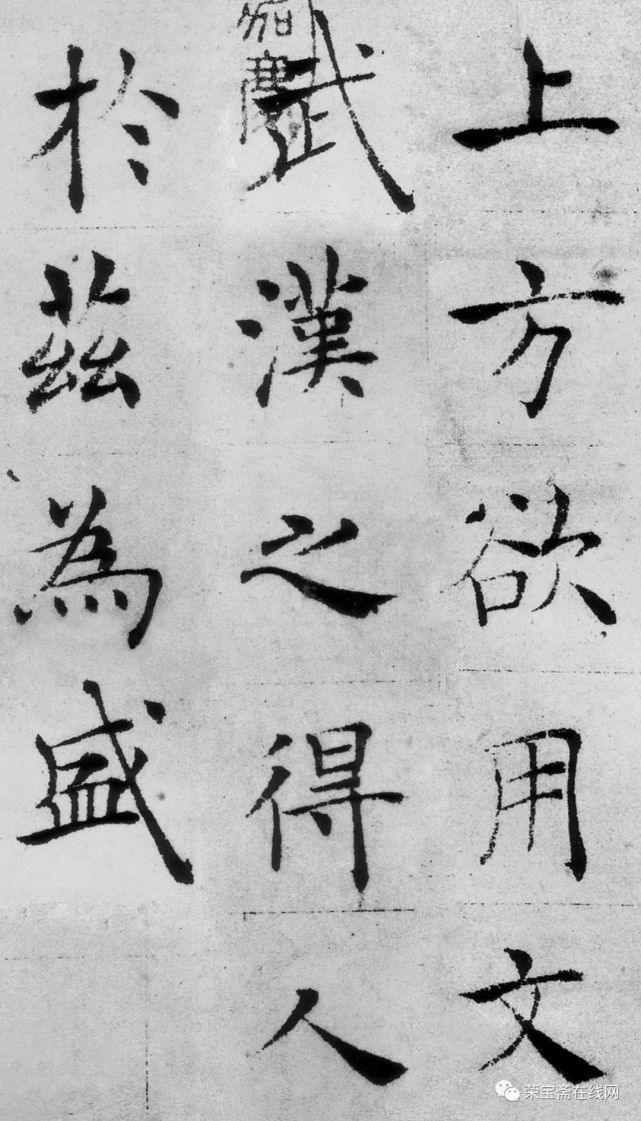 上方欲用文
武漢之得人
於茲為盛
嘉慶
荣宝斋在线网